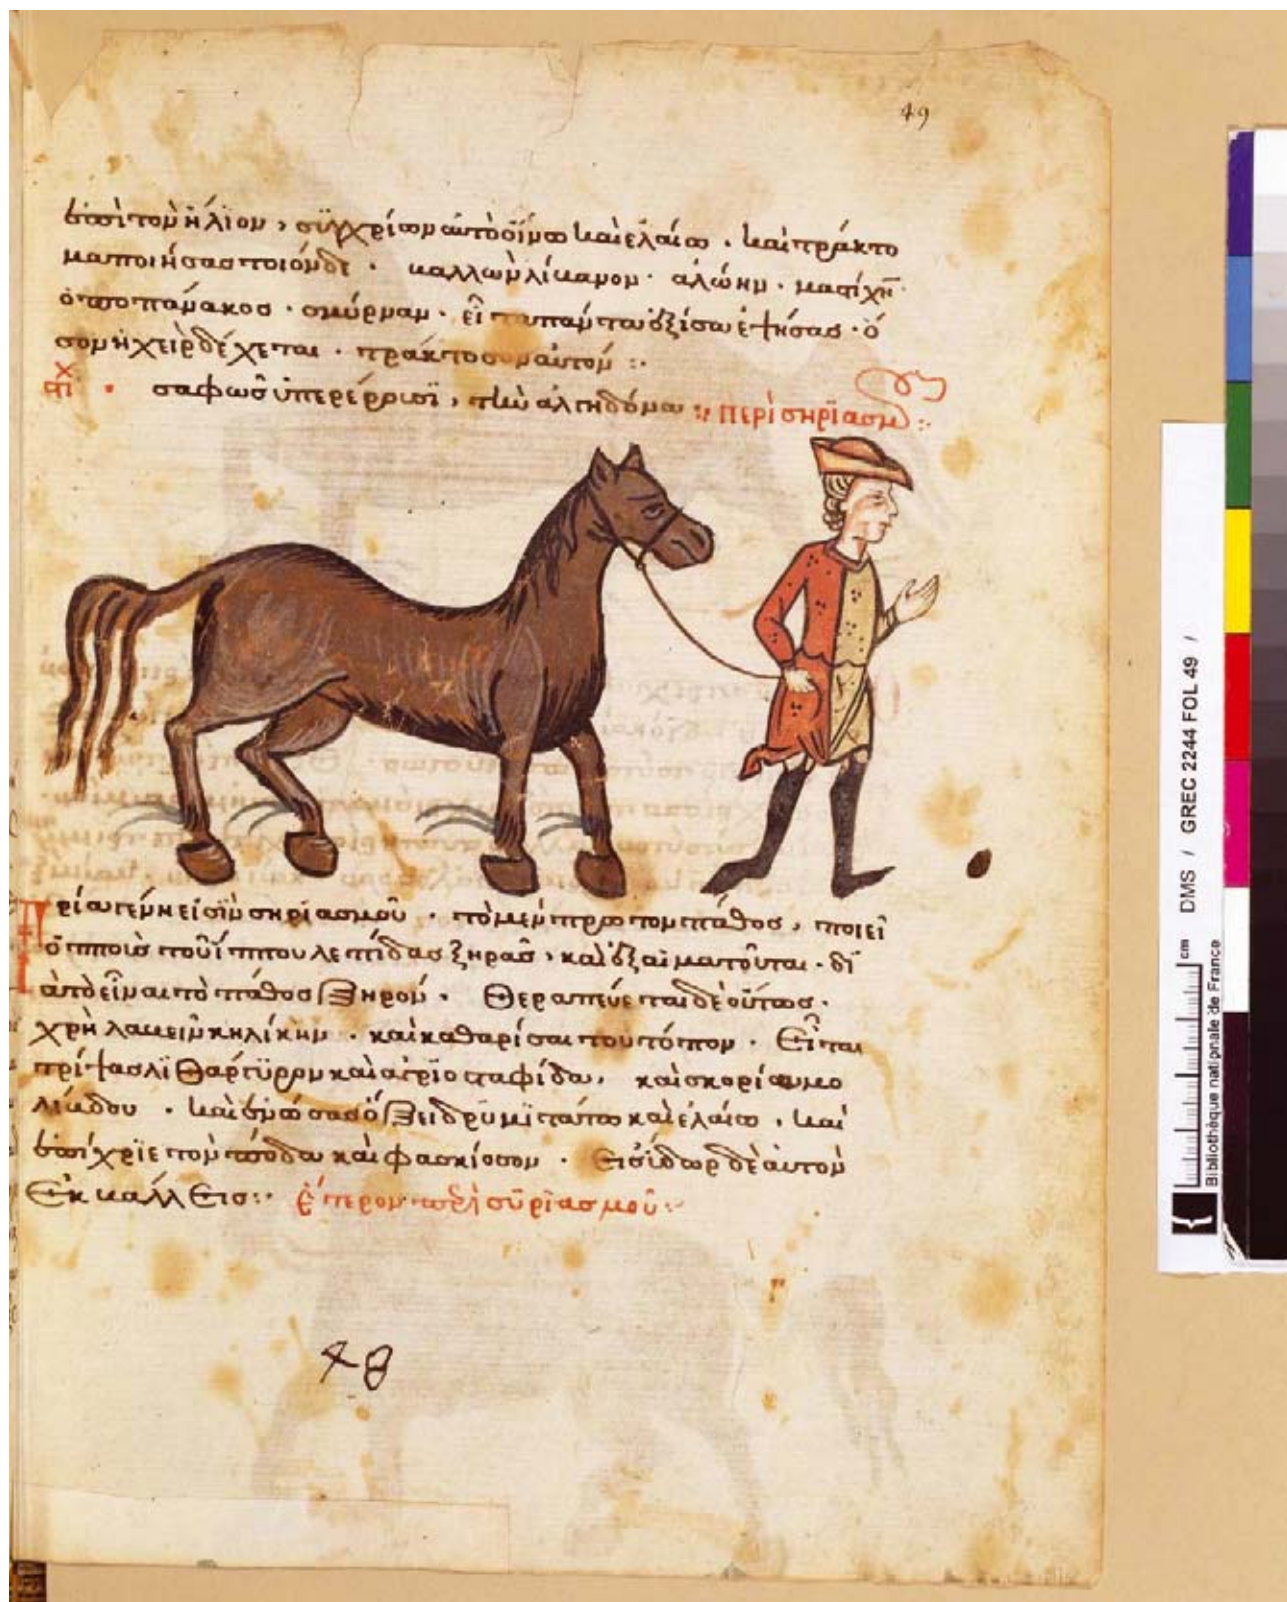 49
τὸν ἥλιον, συγχρίων αὐτὸ οἴνω καὶ ἐλαίω. καὶ πράκτο
μα ποιήσας τοιόνδε. καλλὼν λίβανον. αλώην. μασίχη
ὀποπάνακος. σμύρναν. εἶτα πάντα ἐξίσω ἑψήσας. ὅ
σον ἡ χεὶρ δέχεται. πράκτοσον αὐτόν :.
σαφῶς ὑπερέρρισϊ, τὴν ἀλγηδόνα :: περὶ σηρϊασμ :.
ρία γένη εἰσὶν σηριασμοῦ. τὸ μὲν πρῶτον πάθος, ποιεῖ
τοῦ ἵππου λεπίδας ξηρὰς, καὶ ἐξαιματοῦται. δϊ
ατὸ εἶναι τὸ πάθος ξηρόν. θεραπεύεται δὲ οὕτως.
χρὴ λαβεῖν κηλίκην. καὶ καθαρίσαι τουτόπον. Εἶτα
τρίψας λϊθάργϋρον καὶ ἀγριοσταφίδα, καὶ σκορίαν μο
λίβδου. καὶ ἑνώσας ὄξει δρϋμϊτάτω καὶ ἐλαίω, καὶ
ἐπίχρϊε τὸν πόδα καὶ φασκίοσον. Εἰς ὕδωρ δὲ αὐτὸν
Ἐκβάλλεις :. ἕτερον περὶ σϋρϊασμοῦ :.
48
DMS / GREC 2244 FOL 49 /
cm
Bibliothèque nationale de France